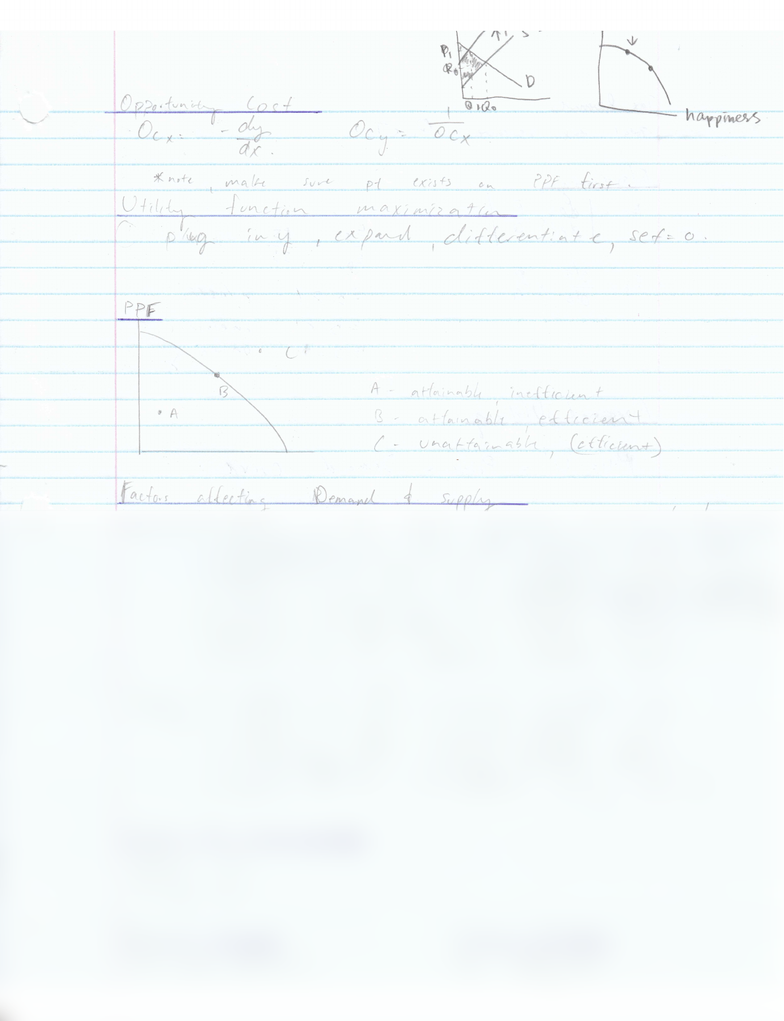 P1 S
P0
D
Q1Q0
happiness
Opportunity Cost
OCx = -dy/dx. OCy = 1/OCx
*note, make sure pt exists on PPF first.
Utility function maximization
plug in y, expand, differentiate, set = 0.
PPF
C
B
A
A - attainable, inefficient
B - attainable, efficient
C - unattainable, (efficient)
Factors affecting Demand & supply